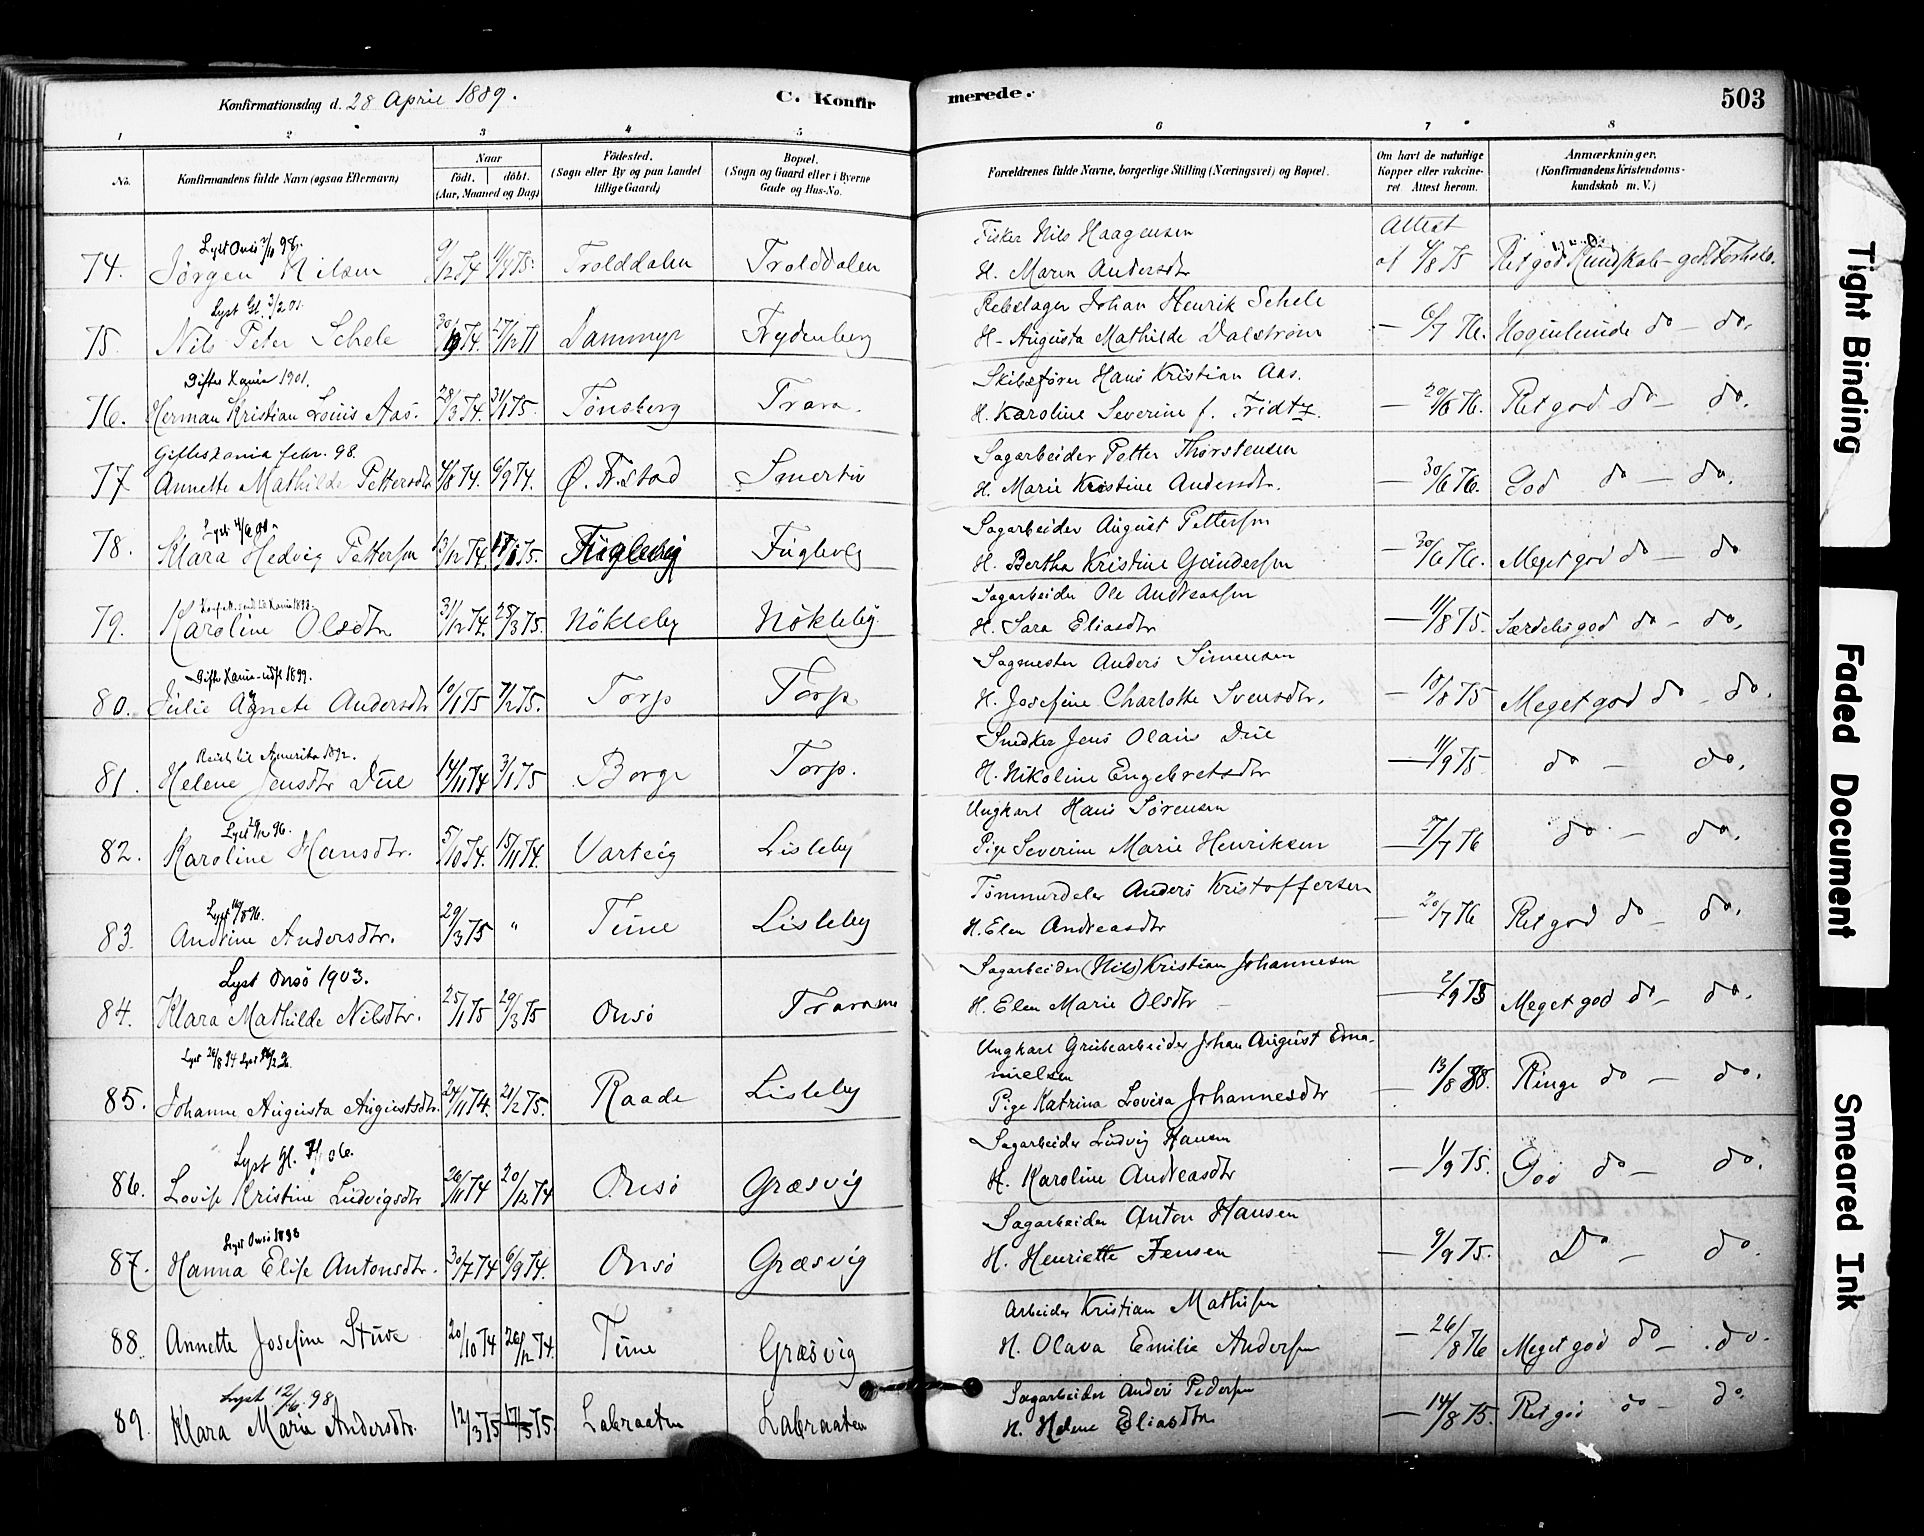 Konfirmationsdag d. 28 April 1889.
C. Konfir
merede.
503
1 2 3 4 5 6 7 8
No.
Konfirmandens fulde Navn (ogsaa Efternavn)
Naar
født. døbt.
(Aar, Maaned og Dag)
Fødested.
(Sogn eller By og paa Landet
tillige Gaard)
Bopæl.
(Sogn og Gaard eller i Byerne
Gade og Hus-No.
Forældrenes fulde Navne, borgerlige Stilling (Næringsvei) og Bopæl.
Om havt de naturlige
Kopper eller vakcine-
ret Attest herom.
Anmærkninger.
(Konfirmandens Kristendoms-
kundskab m. V.)
Fisker Nils Haagensen Attest
74. Jørgen Nilsen Trolddalen Trolddalen H. Maren Andersdtr af 4/8 75 Ret god Kundskab - god Forhold.
Rebslager Johan Henrik Schele
75. Nils Peter Schele Dammyr Frydenberg H. Augusta Mathilde Dalström — 6/7 76. do — do.
Gifte Xania 1901. Skibsfører Hans Kristian Aas.
76. Herman Kristian Louis Aas. 28/3 74. 31/1 75. Tønsberg Trara. H. Karoline Severine f. Fridtz. — 20/6 76. Ret god do — do.
Giftes Xania febr. 98. Sagarbeider Petter Thorstensen
77 Annette Mathilde Pettersdtr 4/8 74. 6/9 74. Ø. Fr.stad Smertu H. Marie Kristine Andersdtr. — 30/6 76. God do — do.
Sagarbeider August Pettersen
78. Klara Hedvig Pettersen Fuglevig Fuglevig H. Bertha Kristine Gundersen — 30/6 76. Meget god do — do
Sagarbeider Ole Andreassen
79. Karoline Olsdtr 31/12 74. 28/3 75. Nökleby Nökleby H. Sara Eliasdtr — 11/8 75. Særdeles god do — do.
Gifte Xania 1899. Sagmester Anders Simensen
80. Julie Agnete Andersdtr 10/1 75 7/2 75. Torp Torp H. Josefine Charlotte Svensdtr. — 18/8 75 Meget god do — do.
Reist til Amerika 1892. Snedker Jens Olaus Due
81. Helene Jensdtr Due 14/11 74 3/1 75 Borge Torp. H. Nikoline Engebretsdtr — 11/9 75. do — do.
Lyst 29/12 96. Ungkarl Hans Sørensen
82. Karoline Hansdtr. 5/10 74. 15/11 74. Varteig Lisleby Pige Severine Marie Henriksen — 7/7 76 do — do.
Lyst 16/8 96. Tømmerdeler Anders Kristoffersen
83. Andrine Andersdtr. 29/3 75 " Tune Lisleby H. Elen Andreasdtr — 20/7 76 Ret god do — do.
Lyst Onsö 1903. Sagarbeider (Nils) Kristian Johannesen
84. Klara Mathilde Nilsdtr. 25/1 75 29/3 75 Onsö Traraene H. Elen Marie Olsdtr — 2/9 75 Meget god do — do.
Ungkarl Grubearbeider Johan August Ema-
nuelsen
85. Johanne Augusta Augustsdtr. 24/11 74. 21/2 75. Raade Lisleby Pige Katrina Lovisa Johannesdtr — 13/8 88. Ringe do — do.
Sagarbeider Ludvig Hansen
86. Lovise Kristine Ludvigsdtr 26/11 74 20/12 74 Onsö Græsvig H. Karoline Andreasdtr — 1/9 75. God do — do.
Lyst Onsö 1898 Sagarbeider Anton Hansen
87. Hanna Elise Antonsdtr. 30/7 74 6/9 74. Onsö Græsvig H. Henriette Jensen — 9/9 75. Do — do.
Arbeider Kristian Mathisen
88. Annette Josefine Stuve 20/10 74 26/12 74. Tune Græsvig H. Olava Emilie Andersen — 26/8 76 Meget god do — do.
Lyst 12/6 98 Sagarbeider Anders Pedersen
89. Klara Marie Andersdtr. 12/3 75 17/5 75. Labraaten Labraaten H. Helene Eliasdtr — 14/8 75. Ret god do — do.
Tight Binding
Faded Document
Smeared Ink